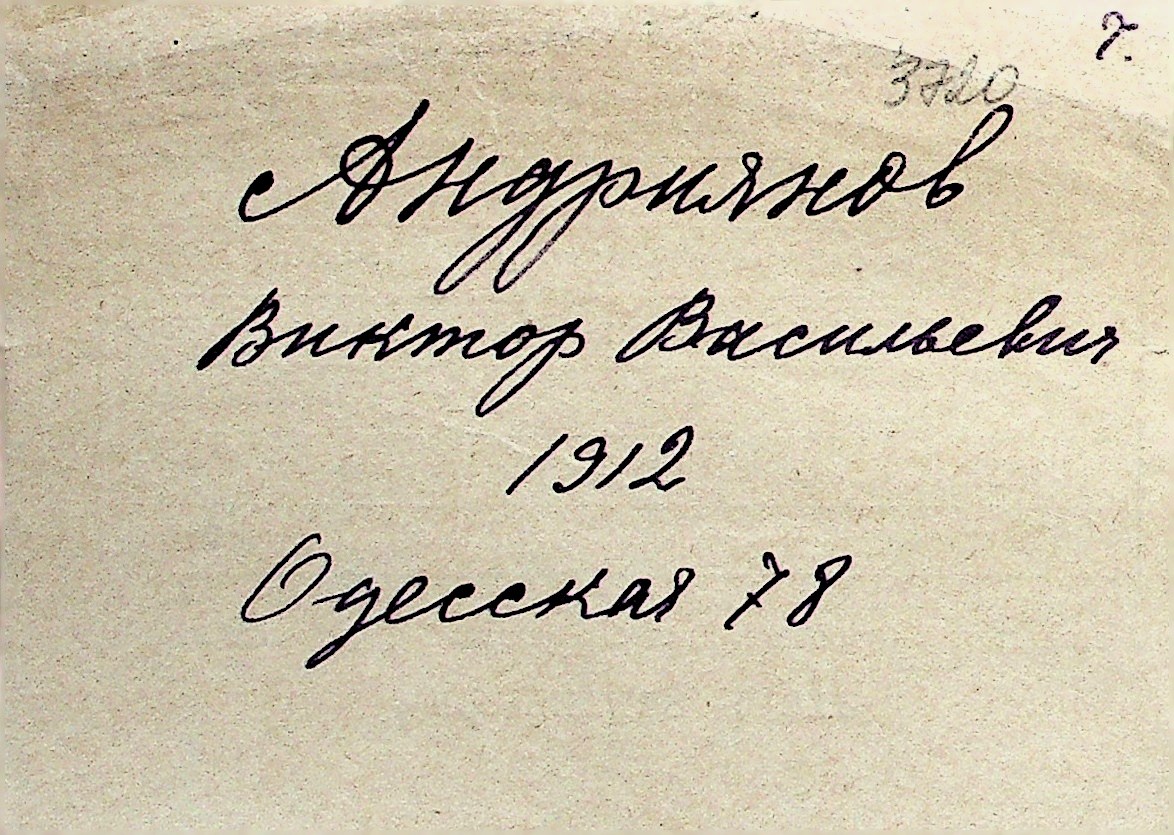 7.
3720
Андриянов
Виктор Васильевич
1912
Одесская 78